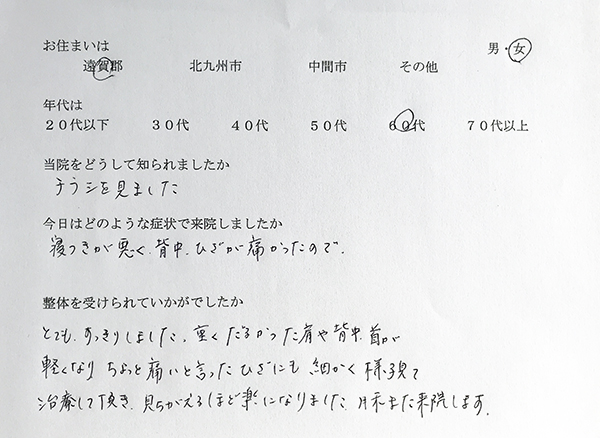 お住まいは 男・女
遠賀郡 北九州市 中間市 その他
年代は
20代以下 30代 40代 50代 60代 70代以上
当院をどうして知られましたか
チラシを見ました
今日はどのような症状で来院しましたか
寝つきが悪く、背中、ひざが痛かったので、
整体を受けられていかがでしたか
とても、すっきりしました。重くだるかった肩や背中、首が
軽くなり ちょっと痛いと言ったひざにも 細かく 様子見て
治療して頂き、見ちがえるほど楽になりました。月末また来院します。